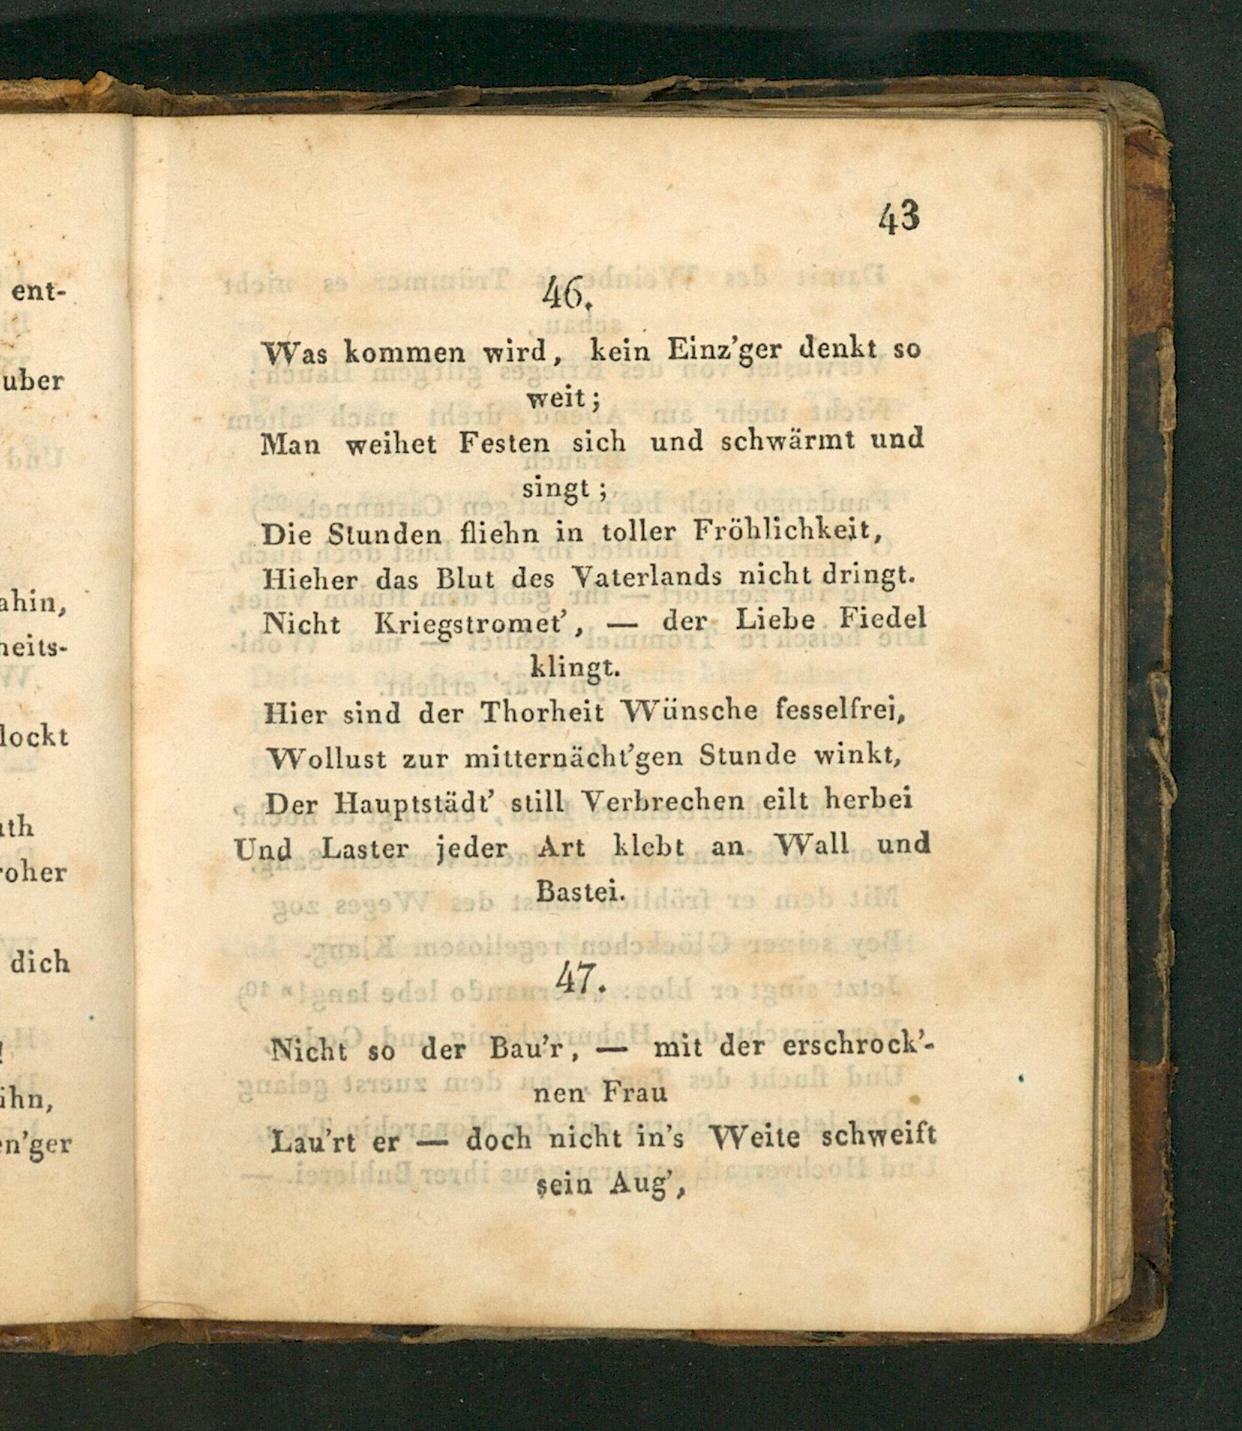 ent-
uber
ahin,
heits-
lockt
ath
roher
dich
ihn,
en'ger
43
46.
Was kommen wird, kein Einz'ger denkt so
weit;
Man weihet Festen sich und schwärmt und
singt;
Die Stunden fliehn in toller Fröhlichkeit,
Hieher das Blut des Vaterlands nicht dringt.
Nicht Kriegstromet', — der Liebe Fiedel
klingt.
Hier sind der Thorheit Wünsche fesselfrei,
Wollust zur mitternächt'gen Stunde winkt,
Der Hauptstädt' still Verbrechen eilt herbei
Und Laster jeder Art klebt an Wall und
Bastei.
47.
Nicht so der Bau'r, — mit der erschrock'-
nen Frau
Lau'rt er — doch nicht in's Weite schweift
sein Aug',